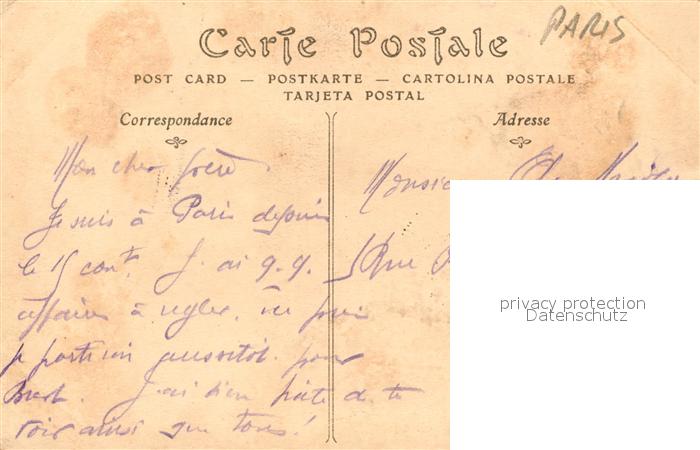 PARIS
Carte Postale
POST CARD — POSTKARTE — CARTOLINA POSTALE
TARJETA POSTAL
Correspondance
Mon cher frère
Je suis à Paris depuis
le 15 cont. J'ai q.q.
affaires à régler,
je partirai aussitôt pour
Brest. J'ai bien hâte de te
voir ainsi que tous!
Adresse
Monsieur
Rue
privacy protection
Datenschutz